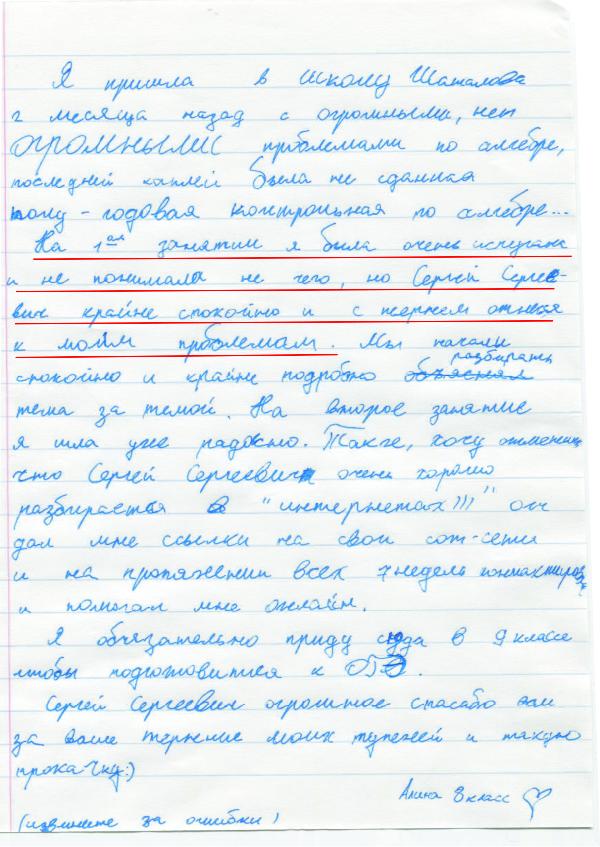 Я пришла в школу Шаталова
2 месяца назад с огромными, нет
ОГРОМНЫМИ проблемами по алгебре,
последней каплей была не сданная
полу-годовая контрольная по алгебре...
На 1ом занятии я была очень испугана
и не понимала не чего, но Сергей Сергее-
вич крайне спокойно и с
к моим проблемам. Мы начали
спокойно и крайне подробно объясняя разбирать
тема за темой. На второе занятие
я шла уже радосно. Также, хочу отметить
что Сергей Сергеевич очень хорошо
разбирается в "интернетах!!!" он
дал мне ссылки на свои сот-сети
и на протяжении всех 7 недель
и помогал мне онлайн.
Я обязательно приду сюда в 9 классе
чтобы подготовится к
Сергей Сергеевич огромное спасибо вам
за ваше терпение моих тупежей и такую
прокачку:)
Алина 8 класс ♡
(извините за ошибки)